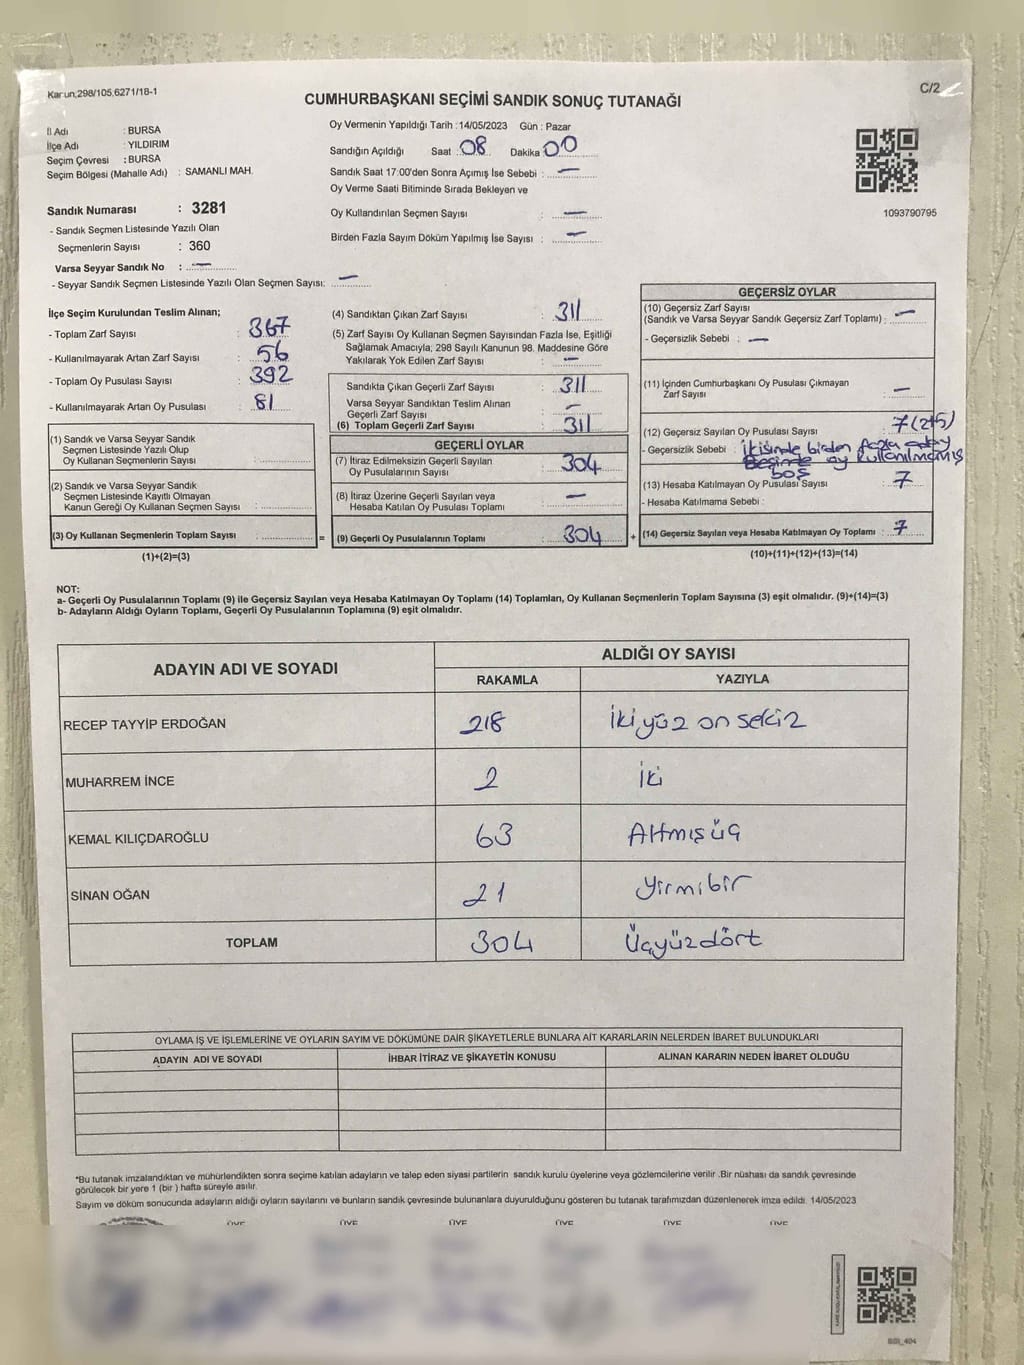 Kanun;298/105,6271/18-1
C/2
CUMHURBAŞKANI SEÇİMİ SANDIK SONUÇ TUTANAĞI
İl Adı : BURSA
İlçe Adı : YILDIRIM
Seçim Çevresi : BURSA
Seçim Bölgesi (Mahalle Adı) : SAMANLI MAH.
Sandık Numarası : 3281
- Sandık Seçmen Listesinde Yazılı Olan
Seçmenlerin Sayısı : 360
Varsa Seyyar Sandık No : —
- Seyyar Sandık Seçmen Listesinde Yazılı Olan Seçmen Sayısı: —
Oy Vermenin Yapıldığı Tarih :14/05/2023 Gün : Pazar
Sandığın Açıldığı Saat : 08 Dakika : 00
Sandık Saat 17:00'den Sonra Açımış İse Sebebi : —
Oy Verme Saati Bitiminde Sırada Bekleyen ve
Oy Kullandırılan Seçmen Sayısı : —
Birden Fazla Sayım Döküm Yapılmış İse Sayısı : —
1093790795
İlçe Seçim Kurulundan Teslim Alınan;
- Toplam Zarf Sayısı : 367
- Kullanılmayarak Artan Zarf Sayısı : 56
- Toplam Oy Pusulası Sayısı : 392
- Kullanılmayarak Artan Oy Pusulası : 81
(1) Sandık ve Varsa Seyyar Sandık
Seçmen Listesinde Yazılı Olup
Oy Kullanan Seçmenlerin Sayısı :
(2) Sandık ve Varsa Seyyar Sandık
Seçmen Listesinde Kayıtlı Olmayan
Kanun Gereği Oy Kullanan Seçmen Sayısı :
(3) Oy Kullanan Seçmenlerin Toplam Sayısı :
(1)+(2)=(3)
=
(4) Sandıktan Çıkan Zarf Sayısı : 311
(5) Zarf Sayısı Oy Kullanan Seçmen Sayısından Fazla İse, Eşitliği
Sağlamak Amacıyla; 298 Sayılı Kanunun 98. Maddesine Göre
Yakılarak Yok Edilen Zarf Sayısı : —
Sandıkta Çıkan Geçerli Zarf Sayısı : 311
Varsa Seyyar Sandıktan Teslim Alınan
Geçerli Zarf Sayısı : —
(6) Toplam Geçerli Zarf Sayısı : 311
GEÇERLİ OYLAR
(7) İtiraz Edilmeksizin Geçerli Sayılan
Oy Pusulasının Sayısı : 304
(8) İtiraz Üzerine Geçerli Sayılan veya
Hesaba Katılan Oy Pusulası Toplamı : —
(9) Geçerli Oy Pusulalarının Toplamı : 304
+
GEÇERSİZ OYLAR
(10) Geçersiz Zarf Sayısı
(Sandık ve Varsa Seyyar Sandık Geçersiz Zarf Toplamı) : —
- Geçersizlik Sebebi : —
(11) İçinden Cumhurbaşkanı Oy Pusulası Çıkmayan
Zarf Sayısı : —
(12) Geçersiz Sayılan Oy Pusulası Sayısı : 7(2+5)
- Geçersizlik Sebebi : ikisinde birden fazla aday
Beşinde oy kullanılmamış
boş
(13) Hesaba Katılmayan Oy Pusulası Sayısı : 7
- Hesaba Katılmama Sebebi :
(14) Geçersiz Sayılan veya Hesaba Katılmayan Oy Toplamı : 7
(10)+(11)+(12)+(13)=(14)
NOT:
a- Geçerli Oy Pusulalarının Toplamı (9) ile Geçersiz Sayılan veya Hesaba Katılmayan Oy Toplamı (14) Toplamları, Oy Kullanan Seçmenlerin Toplam Sayısına (3) eşit olmalıdır. (9)+(14)=(3)
b- Adayların Aldığı Oyların Toplamı, Geçerli Oy Pusulalarının Toplamına (9) eşit olmalıdır.
ADAYIN ADI VE SOYADI ALDIĞI OY SAYISI
RAKAMLA YAZIYLA
RECEP TAYYİP ERDOĞAN 218 İkiyüz on sekiz
MUHARREM İNCE 2 İki
KEMAL KILIÇDAROĞLU 63 Altmışüç
SİNAN OĞAN 21 Yirmibir
TOPLAM 304 Üçyüzdört
OYLAMA İŞ VE İŞLEMLERİNE VE OYLARIN SAYIM VE DÖKÜMÜNE DAİR ŞİKAYETLERLE BUNLARA AİT KARARLARIN NELERDEN İBARET BULUNDUKLARI
ADAYIN ADI VE SOYADI İHBAR İTİRAZ VE ŞİKAYETİN KONUSU ALINAN KARARIN NEDEN İBARET OLDUĞU
*Bu tutanak imzalandıktan ve mühürlendikten sonra seçime katılan adayların ve talep eden siyasi partilerin sandık kurulu üyelerine veya gözlemcilerine verilir .Bir nüshası da sandık çevresinde
görülecek bir yere 1 (bir ) hafta süreyle asılır.
Sayım ve döküm sonucunda adayların aldığı oyların sayılarını ve bunların sandık çevresinde bulunanlara duyurulduğunu gösteren bu tutanak tarafımızdan düzenlenerek imza edildi. 14/05/2023
ÜYE ÜYE ÜYE ÜYE ÜYE ÜYE